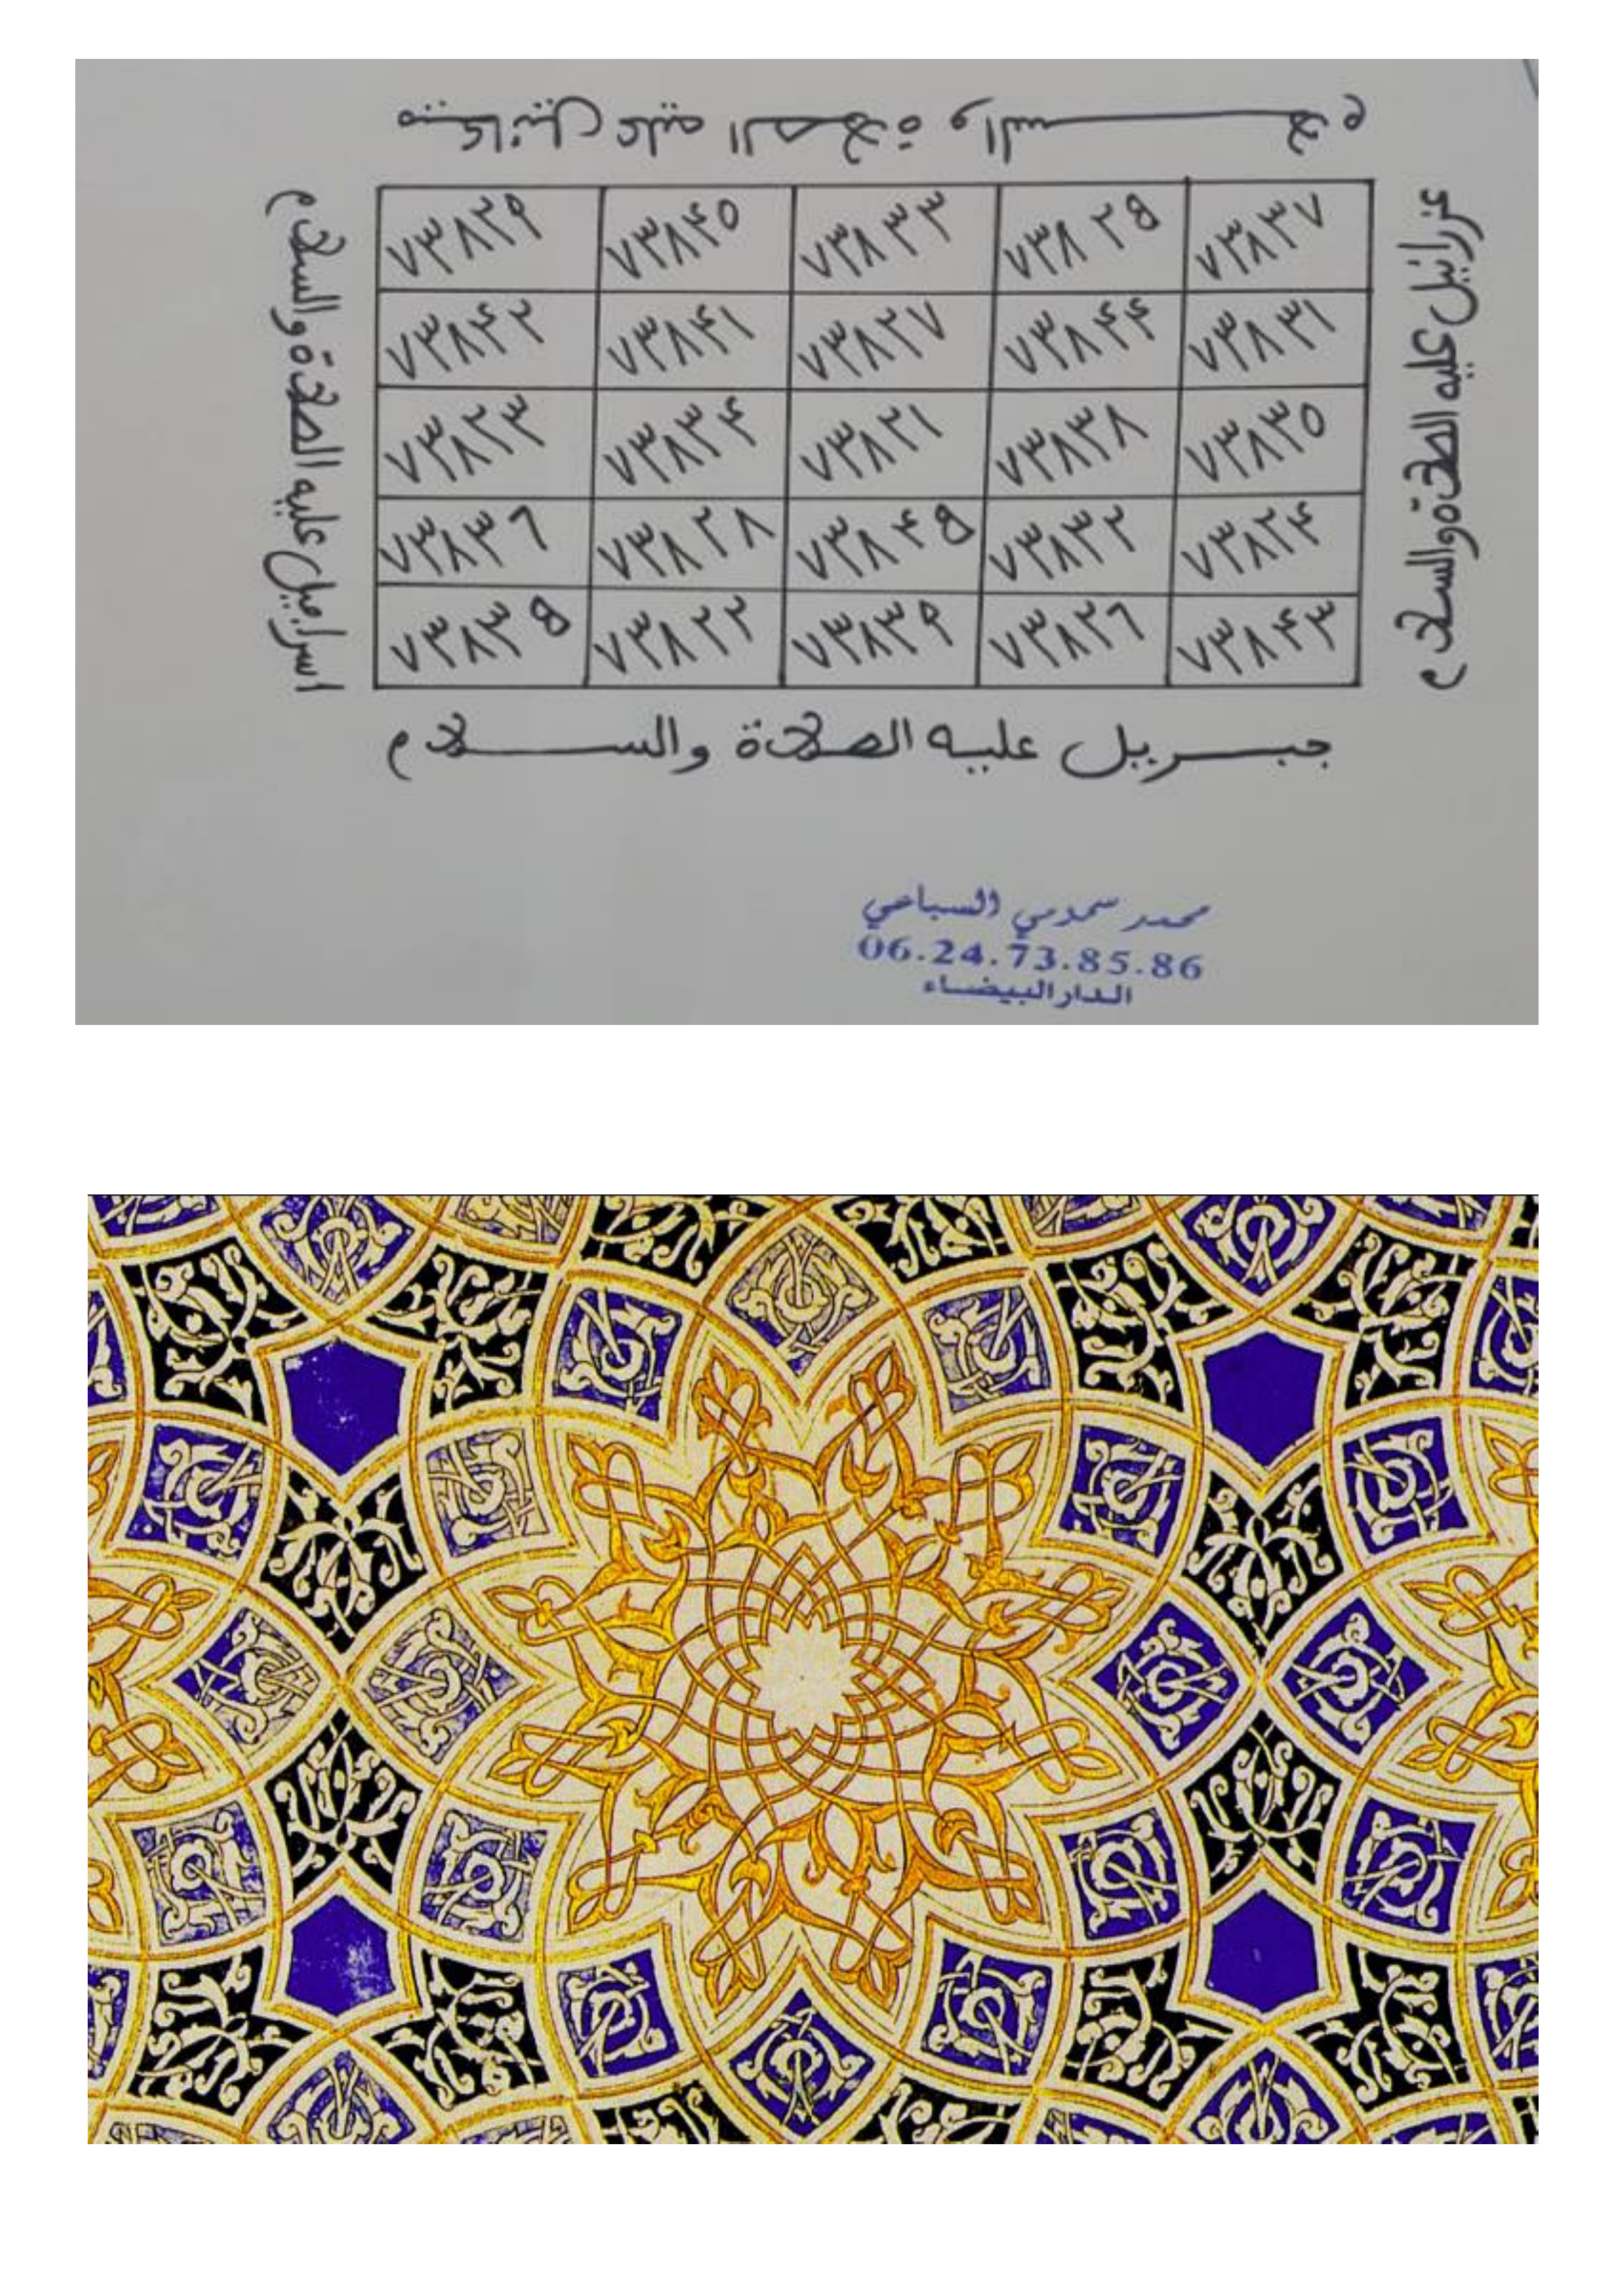 ميكائيل عليه الصلاة والسلام
عزرائيل عليه الصلاة والسلام
٧٣٨٣٧ ٧٣٨٢٥ ٧٣٨٣٣ ٧٣٨٤٠ ٧٣٨٢٩
٧٣٨٣١ ٧٣٨٤٤ ٧٣٨٢٧ ٧٣٨٤١ ٧٣٨٤٢
٧٣٨٣٠ ٧٣٨٣٨ ٧٣٨٢١ ٧٣٨٣٤ ٧٣٨٢٣
٧٣٨٢٤ ٧٣٨٣٢ ٧٣٨٤٥ ٧٣٨٢٨ ٧٣٨٣٦
٧٣٨٤٣ ٧٣٨٢٦ ٧٣٨٣٩ ٧٣٨٢٢ ٧٣٨٣٥
اسرافيل عليه الصلاة والسلام
جبريل عليه الصلاة والسلام
محمد السباعي
06.24.73.85.86
الدار البيضاء